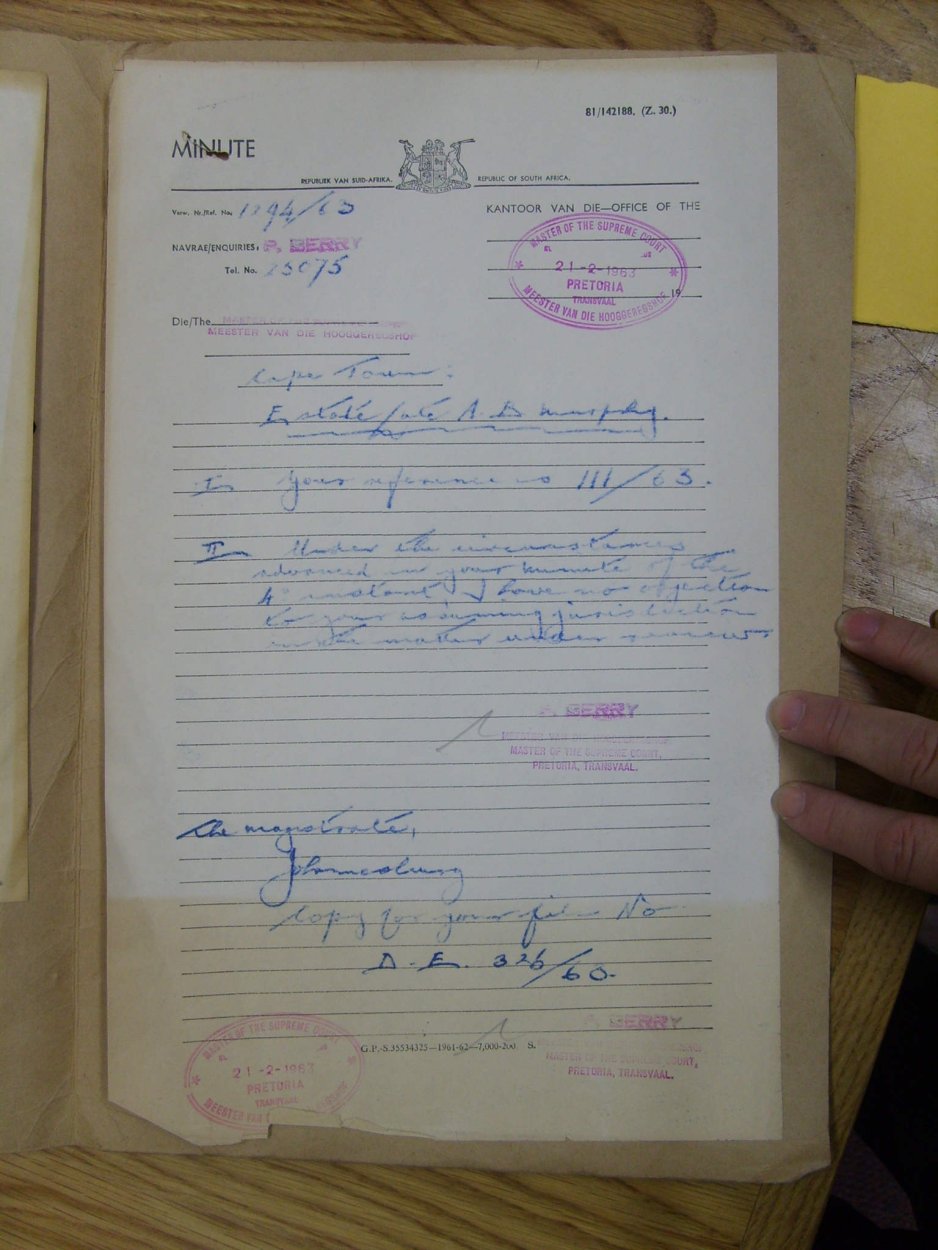 81/142188. (Z. 30.)
MINUTE
REPUBLIEK VAN SUID-AFRIKA. REPUBLIC OF SOUTH AFRICA.
Verw. Nr./Ref. No. 1294/63
KANTOOR VAN DIE—OFFICE OF THE
NAVRAE/ENQUIRIES, P. BERRY
Tel. No. 25075
MASTER OF THE SUPREME COURT
21-2-1963
PRETORIA
TRANSVAAL
MEESTER VAN DIE HOOGGEREGSHOF
19
Die/The MASTER OF
MEESTER VAN DIE HOOGGEREGSHOF
Cape Town:
Estate late A. B Murphy.
I Your reference no 111/63.
II Under the circumstances
advanced in your minute of the
4" instant I have no objection
to your assuming jurisdiction
in the matter under
P. BERRY
MEESTER VAN DIE HOOGGEREGSHOF
MASTER OF THE SUPREME COURT,
PRETORIA, TRANSVAAL.
The magistrate,
Johannesburg
Copy for your file No
D. E. 326/63.
P. BERRY
MASTER OF THE SUPREME COURT,
PRETORIA, TRANSVAAL.
G.P.-S.35534325—1961-62—7,000-200. S.
MASTER OF THE SUPREME COURT
21-2-1963
PRETORIA
TRANSVAAL
MEESTER VAN